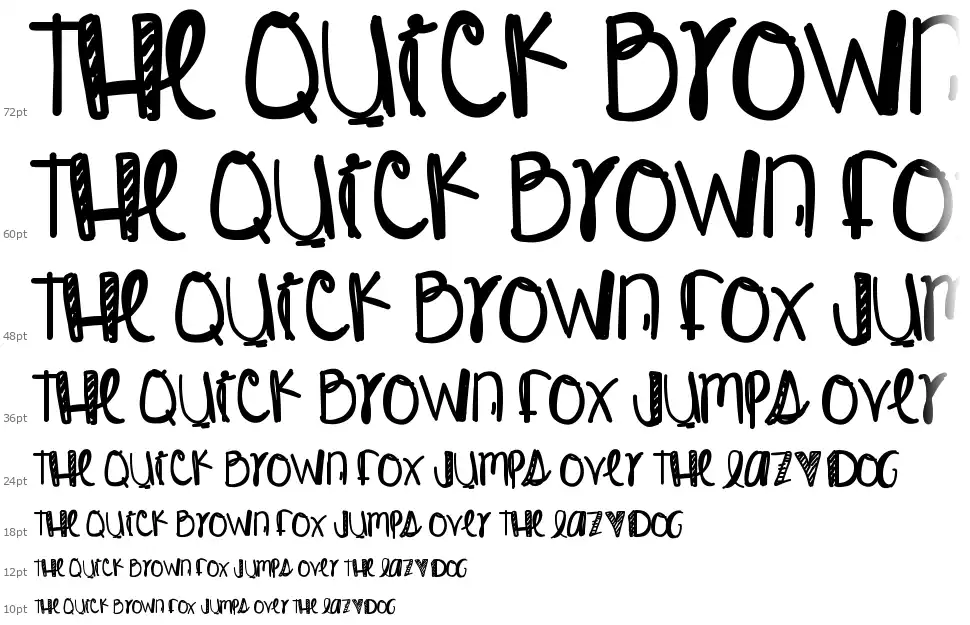 72pt THE QUICK BROWN
60pt THE QUICK BROWN FO
48pt THE QUICK BROWN FOX JUM
36pt THE QUICK BROWN FOX JUMPS OVER
24pt THE QUICK BROWN FOX JUMPS OVER THE LAZY DOG
18pt THE QUICK BROWN FOX JUMPS OVER THE LAZY DOG
12pt THE QUICK BROWN FOX JUMPS OVER THE LAZY DOG
10pt THE QUICK BROWN FOX JUMPS OVER THE LAZY DOG